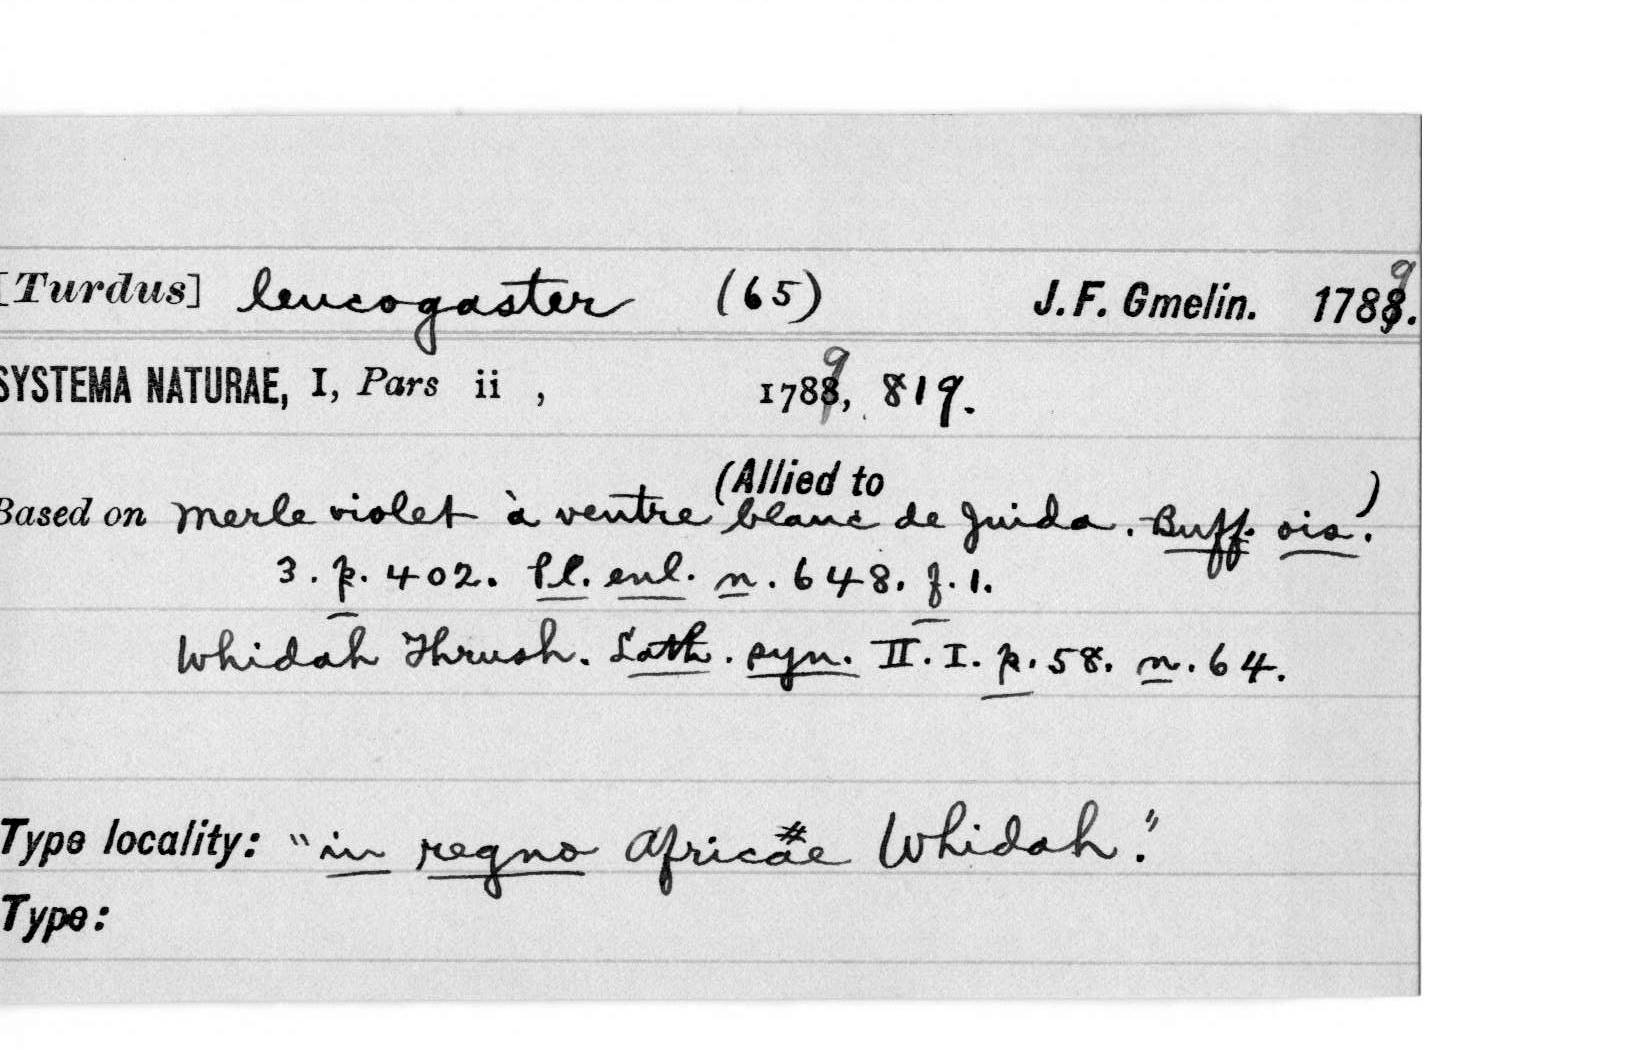 [Turdus] leucogaster (65) J. F. Gmelin. 1789.
SYSTEMA NATURAE, I, Pars ii , 1789, 819.
(Allied to
Based on Merle violet à ventre blanc de Juida. Buff. ois.)
3. p. 402. Pl. enl. n. 648. f. 1.
Whidah Thrush. Lath. syn. II. I. p. 58. n. 64.
Type locality: "in regno Africae Whidah."
Type: